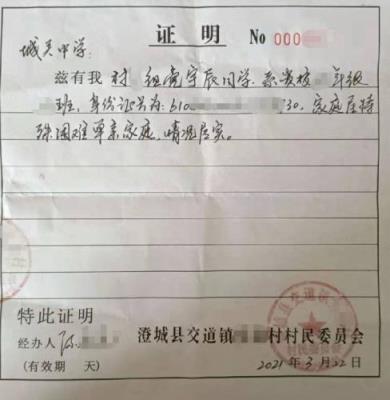 证 明 No 000
城关中学:
兹有我 村 组南宇辰同学. 系贵校 年级
班, 身份证号为: 610 30, 家庭属特
殊困难单亲家庭, 情况属实。
特此证明
经办人 澄城县交道镇 村村民委员会
(有效期 天) 2021 年 3 月 22 日